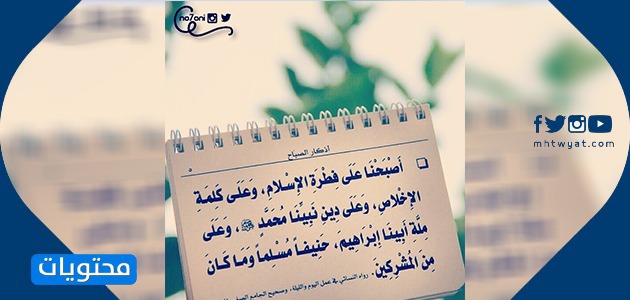 no7oni
mhtwyat.com
اذكار الصباح
٥
أَصْبَحْنَا عَلَى فِطْرَةِ الإِسْلَامِ، وَعَلَى كَلِمَةِ
الإِخْلَاصِ، وَعَلَى دِينِ نَبِيِّنَا مُحَمَّدٍ ﷺ، وَعَلَى
مِلَّةِ أَبِينَا إِبْرَاهِيمَ، حَنِيفاً مُسْلِماً وَمَا كَانَ
مِنَ المُشْرِكِينَ.
رواه النسائي في عمل اليوم والليلة، وصحيح الجامع
محتويات